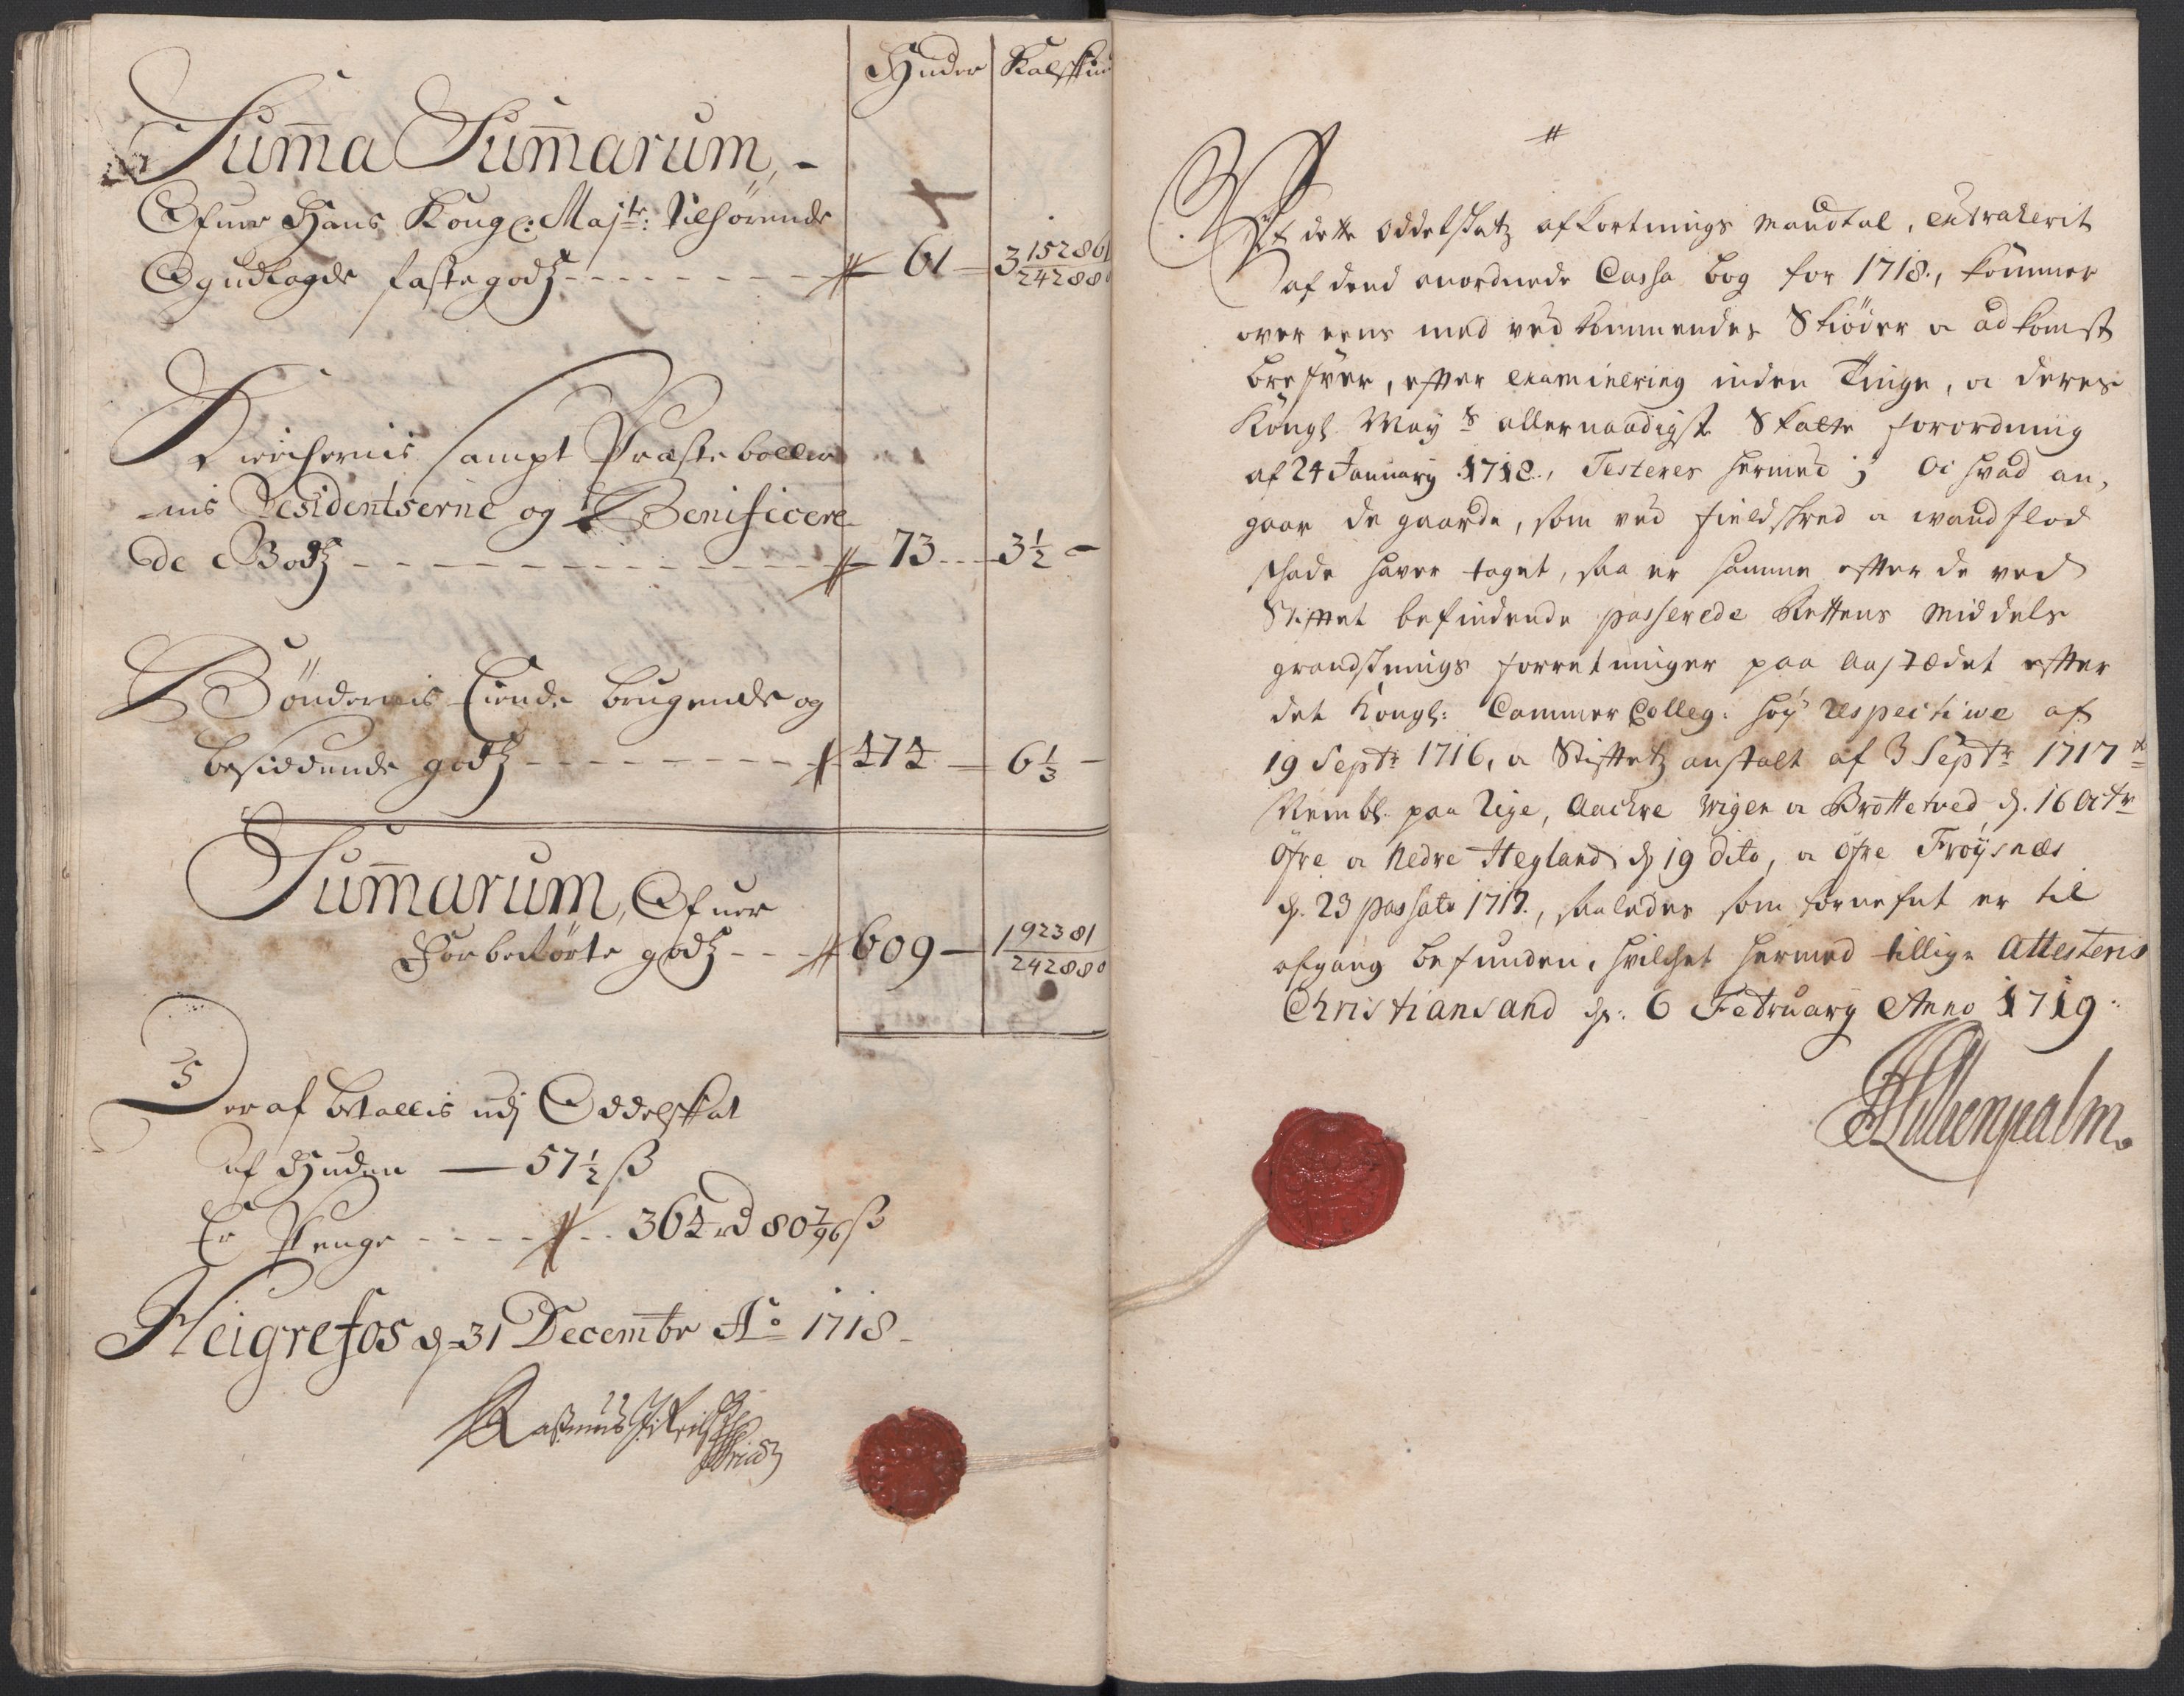 Huder Kalfskind
Summa Summarum,
Ofver Hans Kongl: Majts: Tilhørende
Og udlagde fæstegodz 61 3 152861/242880
Kierchernis sampt Præstebollernis
Residentserne og Benificere
de Godz 73 3½
Bøndernis Eiende brugende og
besiddende godz 474 6⅓
Summarum, Ofver
Forberørte godz 609 1 92381/242880
Deraf betallis udj Oddelskat
af Huden 57½ ß
Er Penge 364 rd 80 7/96 ß
Heigrefos d. 31 Decembr Ao 1718
Rasmus
#
At dette Oddelskatz afkortnings mandtal, extraherit
af dend anordnede Cassa bog for 1718, kommer
over eens med vedkommendes Skiøder og adkomst
brefver, efter examinering inden Tinge, og deres
Kongl May:s allernaadigste Skatte forordning
af 24 January 1718, Testeres hermed; Og hvad an,
gaar de gaarde, som ved fieldskred og vandflod
skade haver taget, saa er samme efter de ved
Stiftet befindende passerede Rettens Middels
grandsknings forretninger paa aastædet efter
det Kongl: Cammer Colleg: høy respective af
19 Septr 1716, og Stiftetz anstalt af 3 Septr 1717
Nembl. paa Rige, Aackre Wigen og Brottetved d. 16 Octr
Øfre og Nedre Hegland d 19 dito, og Øfre Frøysnæs
d. 23 passato 1717, saaledes som fornefnt er til
afgang befunden, hvilchet hermed tillige Attesteris
Christiansand d: 6 February Anno 1719.
Lillienpalm.